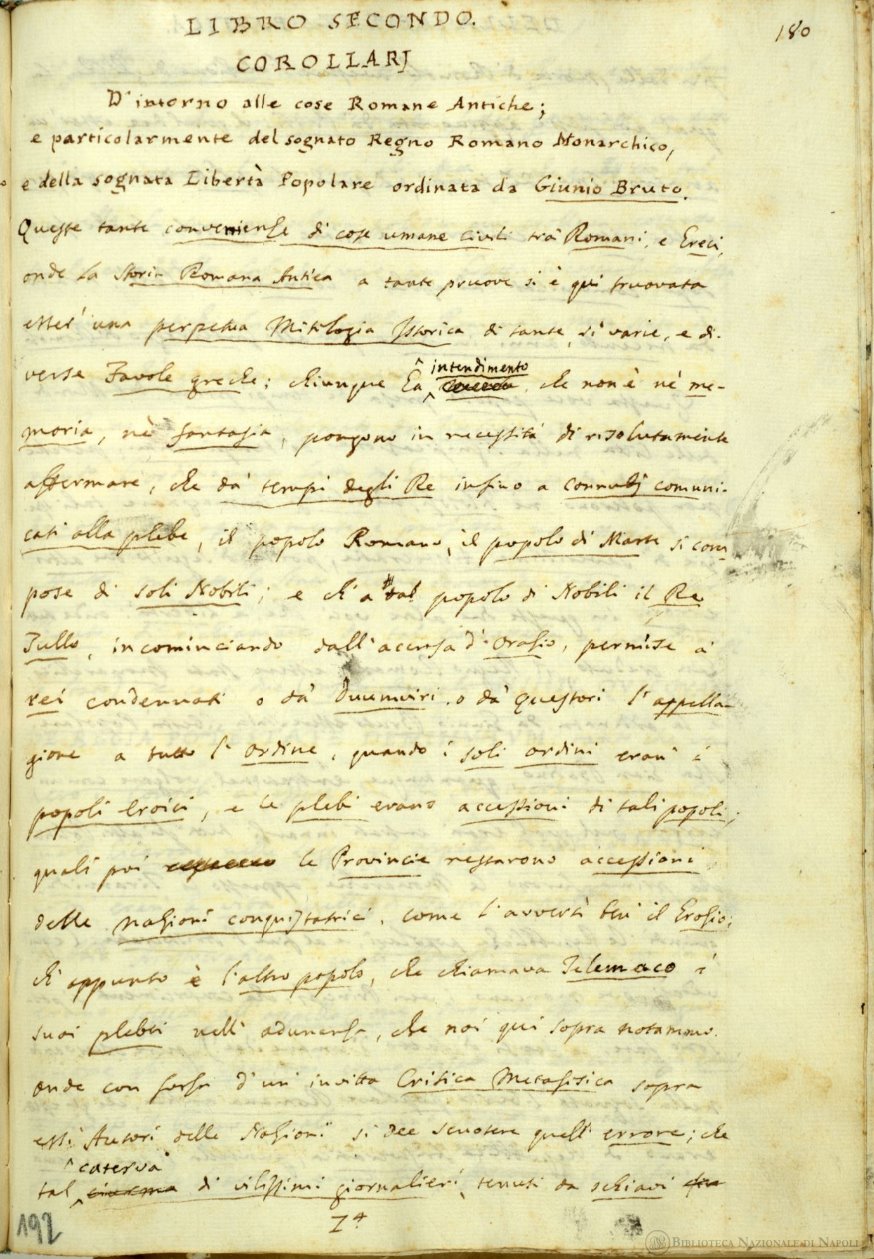 LIBRO SECONDO.
180
COROLLARJ
D'intorno alle cose Romane Antiche;
e particolarmente del sognato Regno Romano Monarchico,
e della sognata Libertà Popolare ordinata da Giunio Bruto.
Queste tante convenienze di cose umane civili tra' Romani, e Greci,
onde la Storia Romana Antica a tante pruove si è qui truovata
esser' una perpetua Mitologia Istorica di tante, sì varie, e di-
verse Favole greche; chiunque ha intendimento che non è nè me-
moria, nè fantasia, pongono in necessità di risolutamente
affermare, che da' tempi degli Re infino a' connubj comuni-
cati alla plebe, il popolo Romano, il popolo di Marte si com-
pose di soli Nobili; e ch'a tal popolo di Nobili il Re
Tullo, incominciando dall'accusa d'Orazio, permise a'
rei condennati o da' Duumviri, o da' Questori l'appella-
gione a tutto l'ordine, quando i soli ordini eran' i
popoli eroici, e le plebi erano accessioni di tali popoli,
quali poi le Provincie restarono accessioni
delle nazioni conquistatrici, come l'avvertì ben' il Grozio;
ch'appunto è l'altro popolo, che chiamava Telemaco i
suoi plebei nell' adunanza, che noi qui sopra notammo.
onde con forza d'un' invitta Critica Metafisica sopra
essi Autori delle Nazioni si dee scuotere quell' errore; che
caterva
tal di vilissimi giornalieri, tenuti da schiavi
Z4
192
BIBLIOTECA NAZIONALE DI NAPOLI